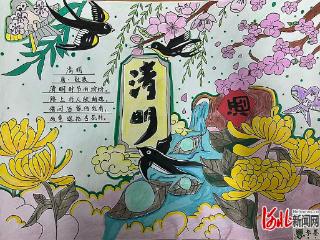 清明
唐·杜牧
清明时节雨纷纷，
路上行人欲断魂。
借问酒家何处有，
牧童遥指杏花村。
清明
酒
河北新闻网